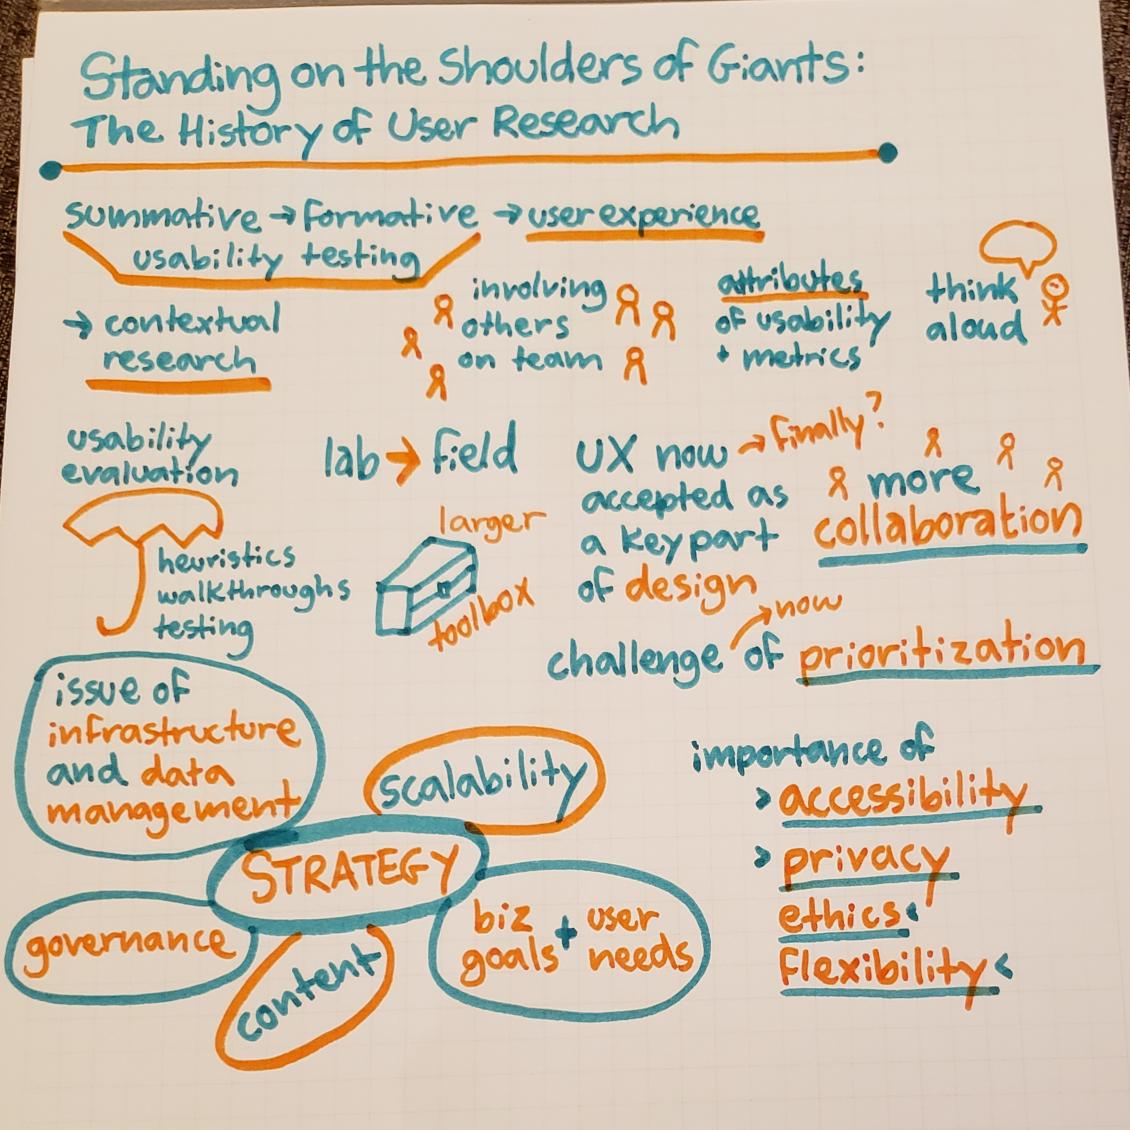 Standing on the Shoulders of Giants:
The History of User Research
summative → formative → user experience
usability testing
→ contextual
research
involving
others
on team
attributes
of usability
+ metrics
think
aloud
usability
evaluation
heuristics
walkthroughs
testing
lab → field
larger
toolbox
UX now → finally?
accepted as
a key part
of design
more
collaboration
challenge of prioritization
now
issue of
infrastructure
and data
management
scalability
STRATEGY
governance
content
biz goals + user needs
importance of
> accessibility
> privacy
ethics <
flexibility <